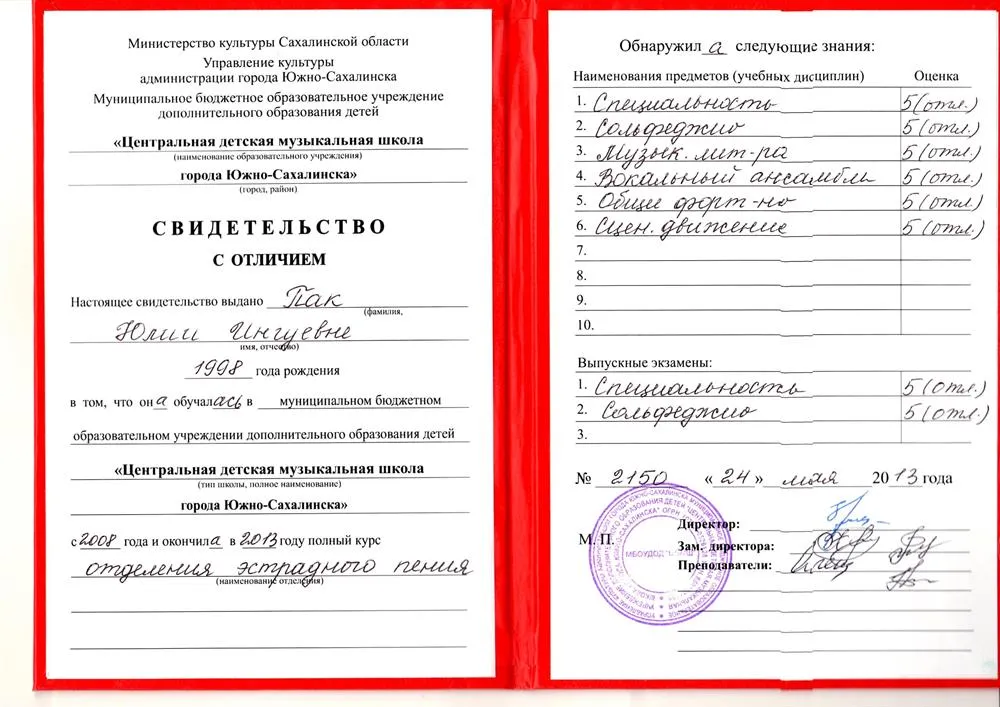 Министерство культуры Сахалинской области
Управление культуры
администрации города Южно-Сахалинска
Муниципальное бюджетное образовательное учреждение
дополнительного образования детей
«Центральная детская музыкальная школа
(наименование образовательного учреждения)
города Южно-Сахалинска»
(город, район)
СВИДЕТЕЛЬСТВО
С ОТЛИЧИЕМ
Настоящее свидетельство выдано Пак
(фамилия,
Юлии Ингуевне
имя, отчество)
1998 года рождения
в том, что она обучалась в муниципальном бюджетном
образовательном учреждении дополнительного образования детей
«Центральная детская музыкальная школа
(тип школы, полное наименование)
города Южно-Сахалинска»
с 2008 года и окончила в 2013 году полный курс
отделения эстрадного пения
(наименование отделения)
Обнаружила следующие знания:
Наименования предметов (учебных дисциплин) Оценка
1. Специальность 5 (отл.)
2. Сольфеджио 5 (отл.)
3. Музык. лит-ра 5 (отл.)
4. Вокальный ансамбль 5 (отл.)
5. Общее форт-но 5 (отл.)
6. Сцен. движение 5 (отл.)
7.
8.
9.
10.
Выпускные экзамены:
1. Специальность 5 (отл.)
2. Сольфеджио 5 (отл.)
3.
№ 2150 « 24 » мая 2013 года
Директор:
М. П.
Зам. директора:
Преподаватели: